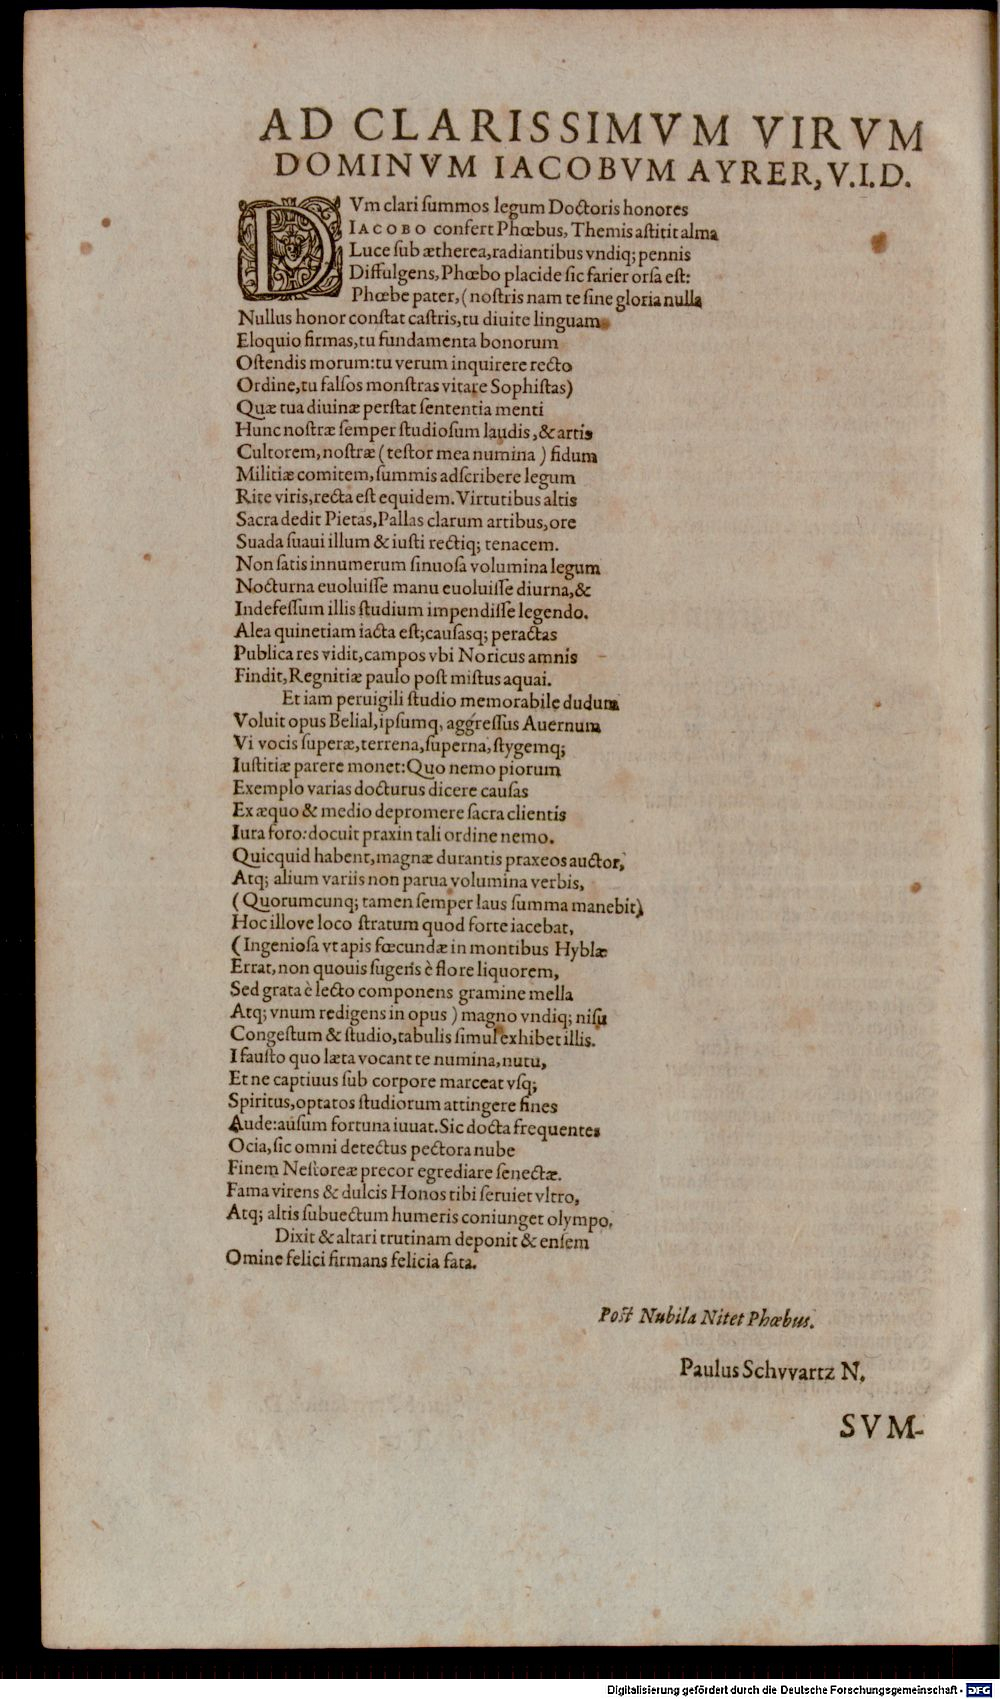 AD CLARISSIMVM VIRVM
DOMINVM IACOBVM AYRER, V.I.D.
DVm clari ſummos legum Doctoris honores
IACOBO confert Phœbus, Themis aſtitit alma
Luce ſub ætherea, radiantibus vndiq; pennis
Diffulgens, Phœbo placide ſic farier orſa eſt:
Phœbe pater, (noſtris nam te ſine gloria nulla
Nullus honor conſtat caſtris, tu diuite linguam
Eloquio firmas, tu fundamenta bonorum
Oſtendis morum: tu verum inquirere recto
Ordine, tu falſos monſtras vitare Sophiſtas)
Quæ tua diuinæ perſtat ſententia menti
Hunc noſtræ ſemper ſtudioſum laudis, & artis
Cultorem, noſtræ (teſtor mea numina) fidum
Militiæ comitem, ſummis adſcribere legum
Rite viris, recta eſt equidem. Virtutibus altis
Sacra dedit Pietas, Pallas clarum artibus, ore
Suada ſuaui illum & iuſti rectiq; tenacem.
Non ſatis innumerum ſinuoſa volumina legum
Nocturna euoluiſſe manu euoluiſſe diurna, &
Indefeſſum illis ſtudium impendiſſe legendo.
Alea quinetiam iacta eſt; cauſasq; peractas
Publica res vidit, campos vbi Noricus amnis
Findit, Regnitiæ paulo poſt miſtus aquai.
Et iam peruigili ſtudio memorabile dudum
Voluit opus Belial, ipſumq, aggreſſus Auernum
Vi vocis ſuperæ, terrena, ſuperna, ſtygemq;
Iuſtitiæ parere monet: Quo nemo piorum
Exemplo varias docturus dicere cauſas
Ex æquo & medio depromere ſacra clientis
Iura foro: docuit praxin tali ordine nemo.
Quicquid habent, magnæ durantis praxeos auctor,
Atq; alium variis non parua volumina verbis,
(Quorumcunq; tamen ſemper laus ſumma manebit)
Hoc illove loco ſtratum quod forte iacebat,
(Ingenioſa vt apis fœcundæ in montibus Hyblæ
Errat, non quouis ſugens è flore liquorem,
Sed grata è lecto componens gramine mella
Atq; vnum redigens in opus) magno vndiq; niſu
Congeſtum & ſtudio, tabulis ſimul exhibet illis.
I fauſto quo læta vocant te numina, nutu,
Et ne captiuus ſub corpore marceat vſq;
Spiritus, optatos ſtudiorum attingere fines
Aude: auſum fortuna iuuat. Sic docta frequentes
Ocia, ſic omni detectus pectora nube
Finem Neſtoreæ precor egrediare ſenectæ.
Fama virens & dulcis Honos tibi ſeruiet vltro,
Atq; altis ſubuectum humeris coniunget olympo.
Dixit & altari trutinam deponit & enſem
Omine felici firmans felicia fata.
Poſt Nubila Nitet Phœbus.
Paulus Schvvartz N.
SVM-
Digitalisierung gefördert durch die Deutsche Forschungsgemeinschaft - DFG